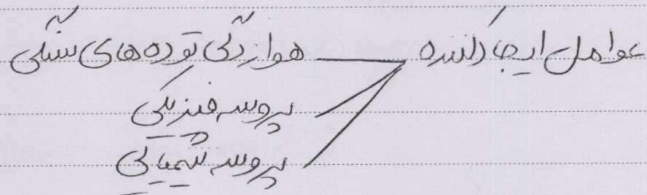 عوامل ایجاد کننده هوازدگی توده های سنگی
پروسه فیزیکی
پروسه شیمیایی